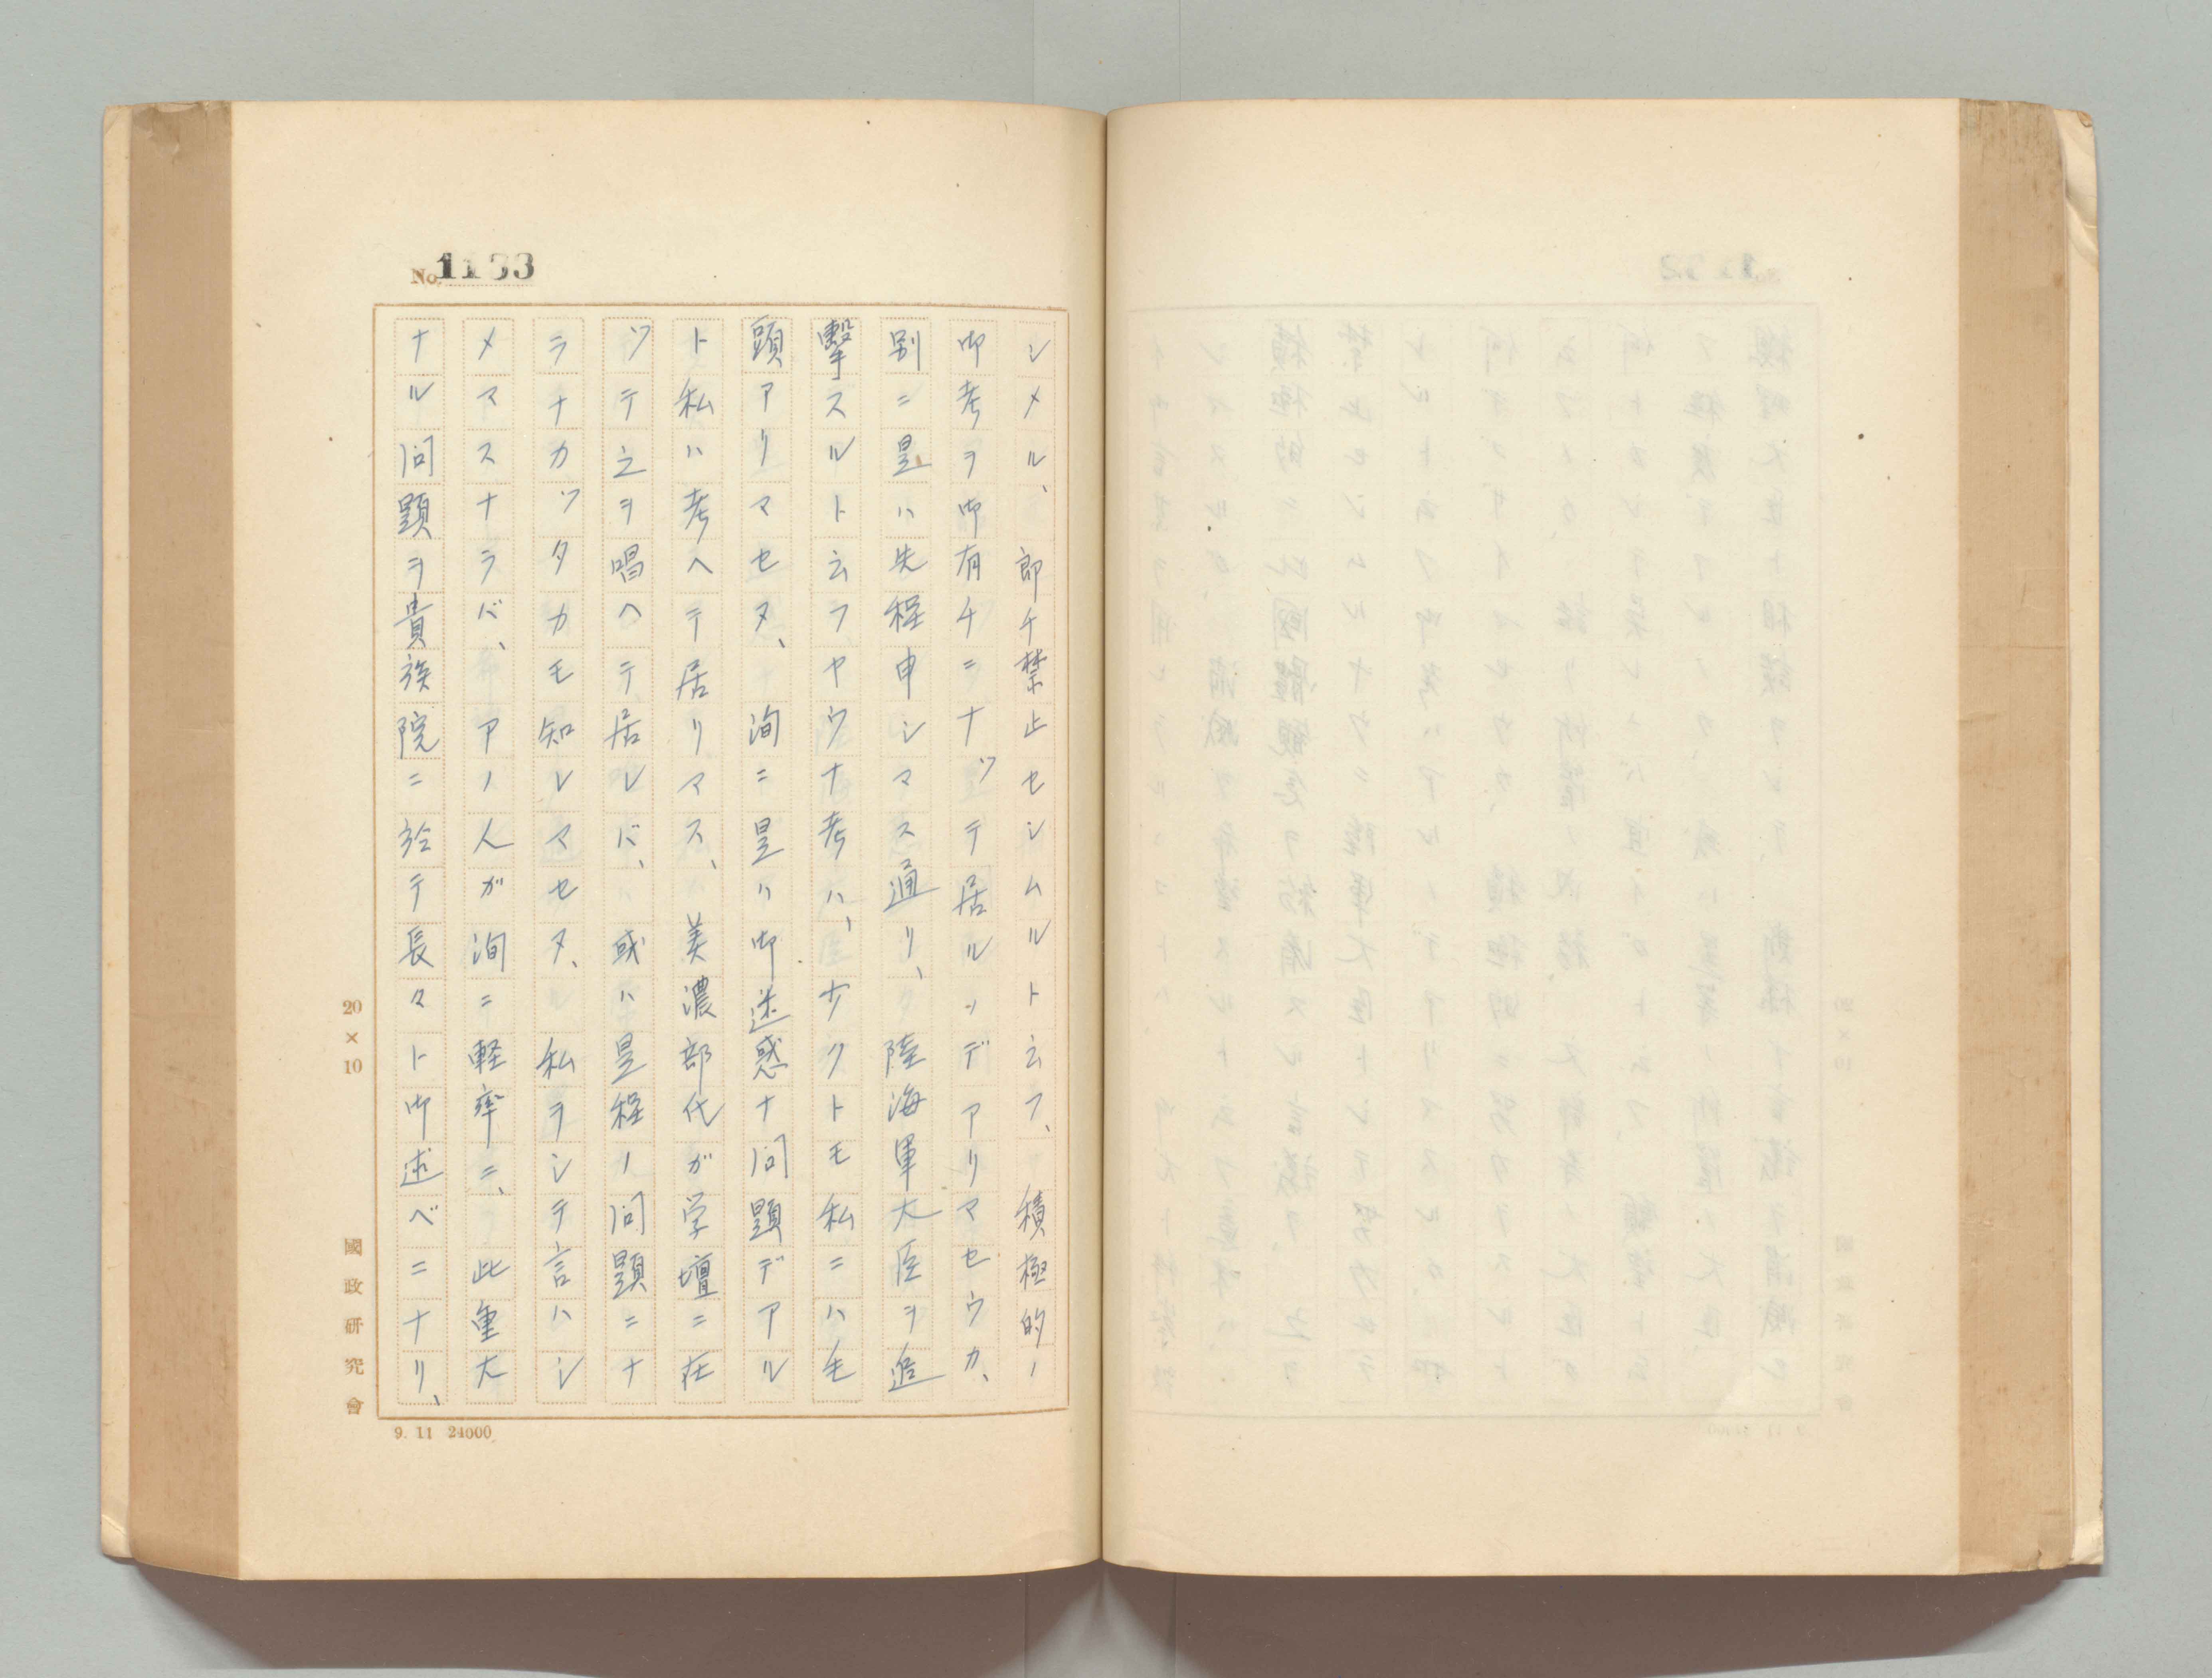 No. 1133
シメル、即チ禁止センシムルト云フ、積極的ノ
御考ヲ御有チニナッテ居ルノデアリマセウカ、
別ニ是ハ先程申シマス通リ、陸海軍大臣ヲ追
撃スルト云フヤウナ考ハ、少クトモ私ニハ毛
頭アリマセヌ、洵ニ是ハ御迷惑ナ問題デアル
ト私ハ考ヘテ居リマス、美濃部代が学壇ニ在
ツテ之ヲ唱ヘテ居レバ、或ハ是程ノ問題ニナ
ラナカツタカモ知レマセヌ、私ヲシテ言ハシ
メマスナラバ、アノ人ガ洵ニ軽率ニ、此重大
ナル問題ヲ貴族院ニ於テ長々ト御述ベニナリ、
20×10
國政研究會
9.11 24000